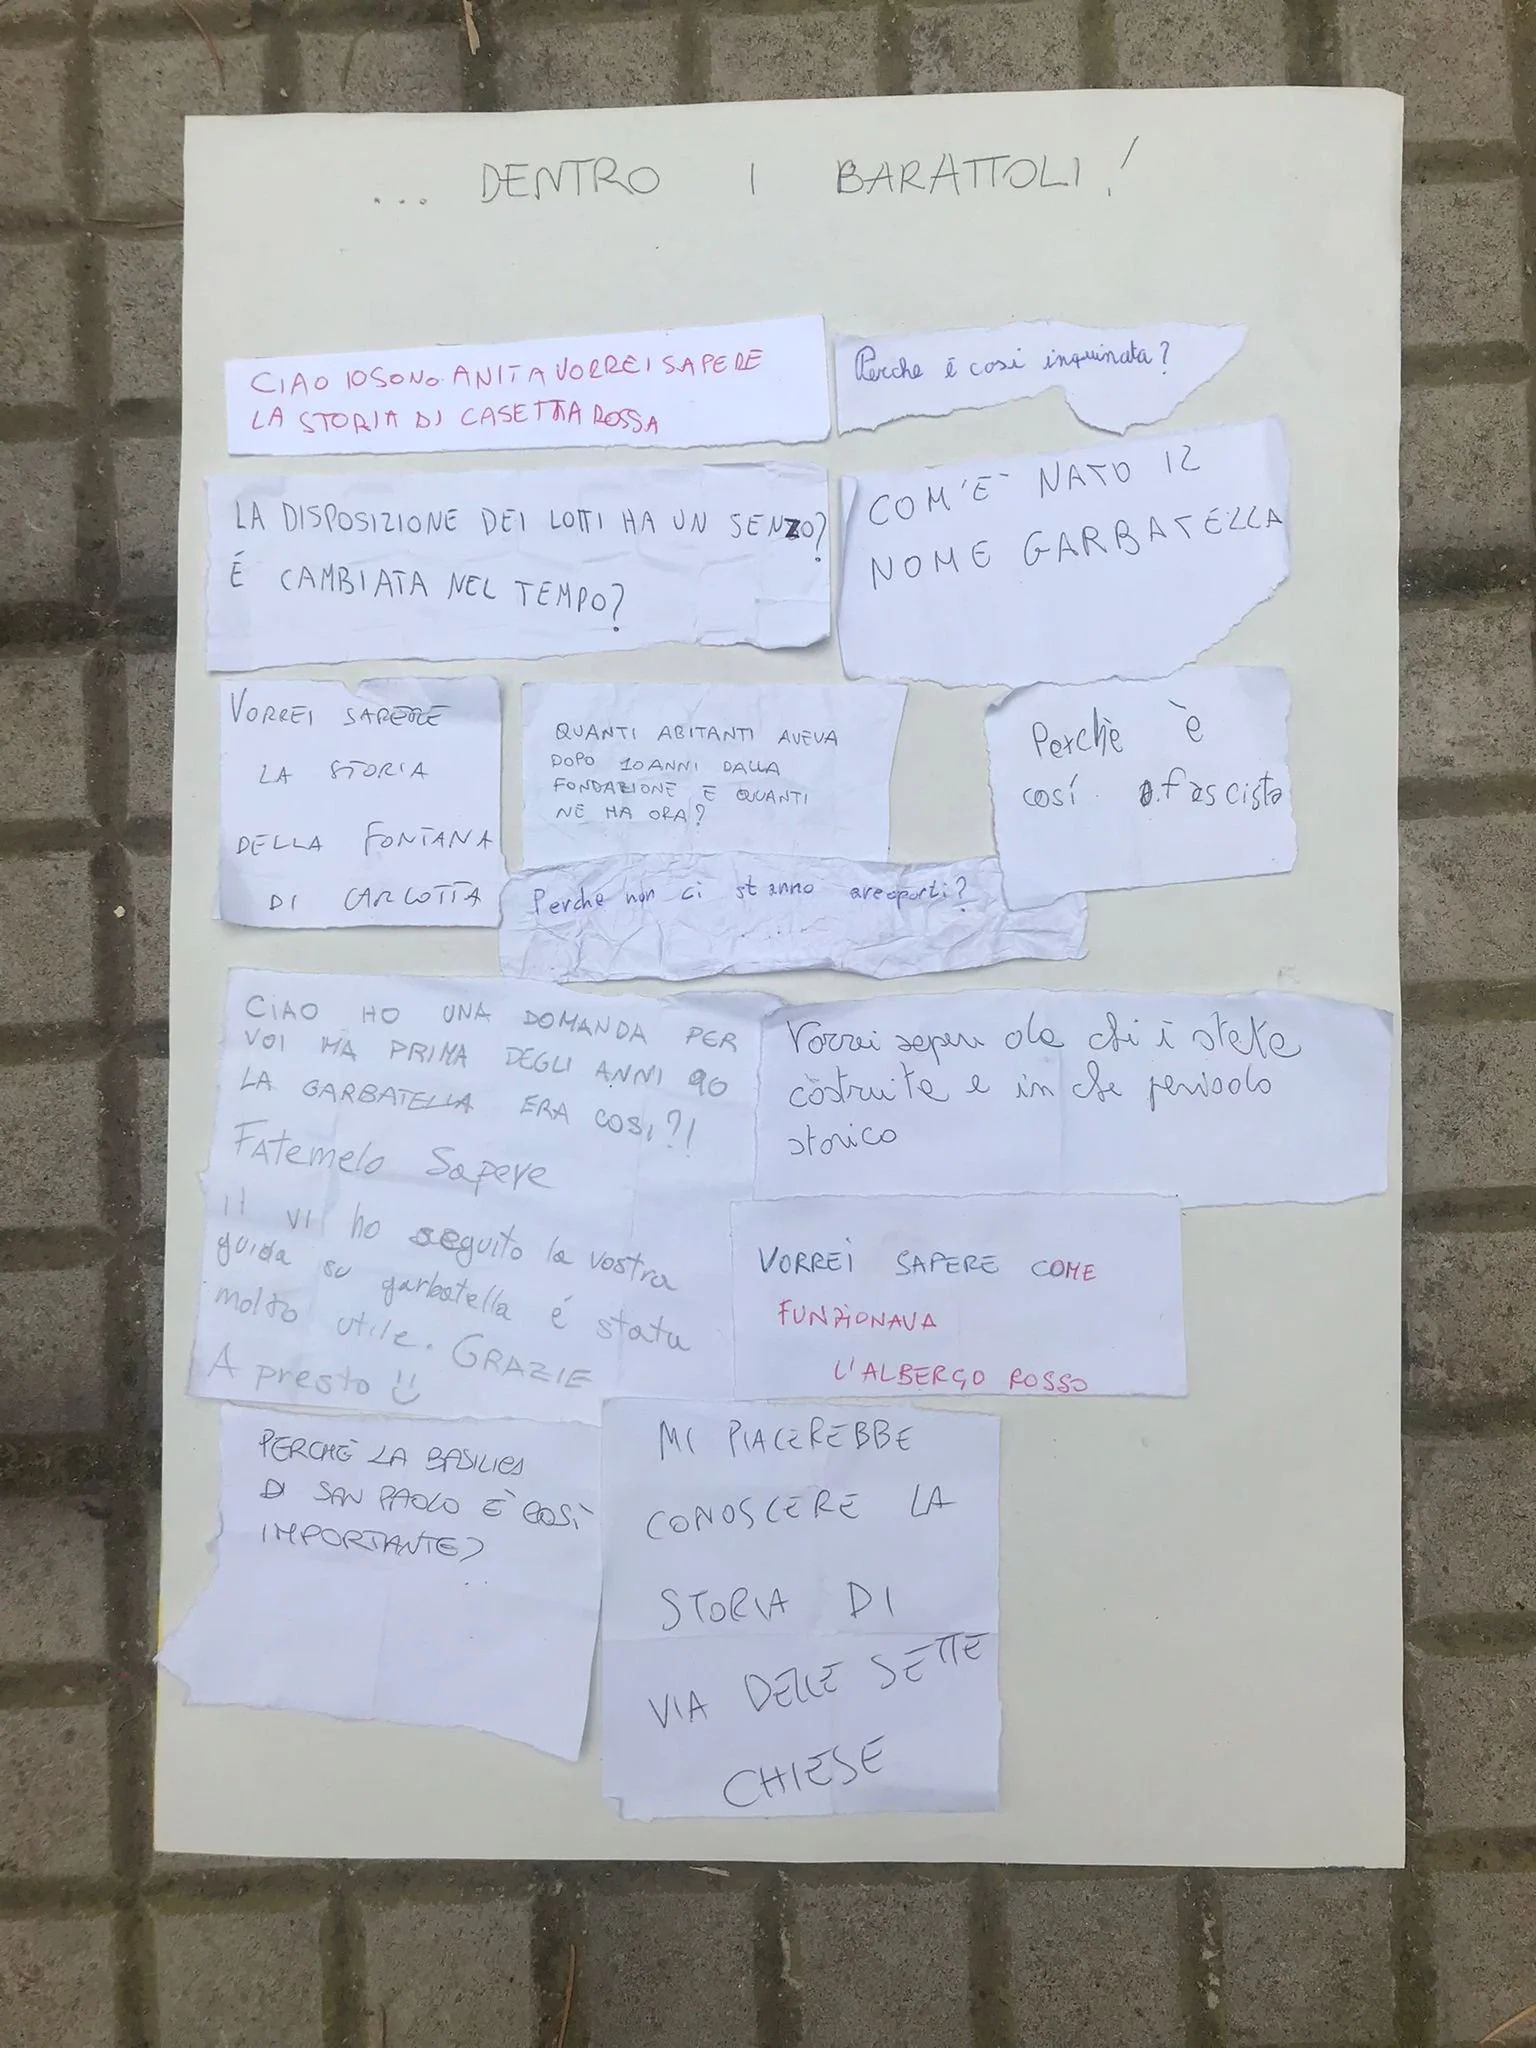 ... DENTRO I BARATTOLI!
CIAO IO SONO ANITA VORREI SAPERE
LA STORIA DI CASETTA ROSSA
Perche è così inquinata?
LA DISPOSIZIONE DEI LOTTI HA UN SENZO?
É CAMBIATA NEL TEMPO?
COM'E' NATO IL
NOME GARBATELLA
VORREI SAPERE
LA STORIA
DELLA FONTANA
DI CARLOTTA
QUANTI ABITANTI AVEVA
DOPO 10 ANNI DALLA
FONDAZIONE E QUANTI
NE HA ORA?
Perchè è
così fascista
Perche non ci stanno areoporti?
CIAO HO UNA DOMANDA PER
VOI MA PRIMA DEGLI ANNI 90
LA GARBATELLA ERA COSI?!
FATEMELO Sapere
!! VI ho seguito la vostra
guida su garbatella é stata
molto utile. GRAZIE
A presto
Vorrei sapere da chi è stata
costruita e in che periodo
storico
VORREI SAPERE COME
FUNZIONAVA
L'ALBERGO ROSSO
PERCHÈ LA BASILICA
DI SAN PAOLO E' COSÌ
IMPORTANTE?
MI PIACEREBBE
CONOSCERE LA
STORIA DI
VIA DELLE SETTE
CHIESE